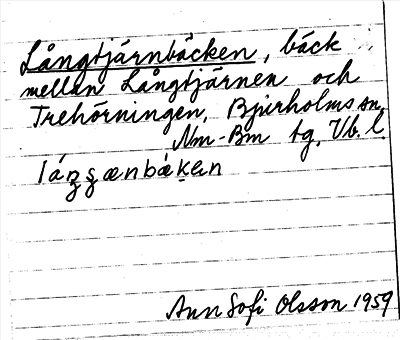 Långtjärnbäcken, bäck
mellan Långtjärnen och
Trehörningen, Bjurholms sn,
Nm-Bm tg, Vb. l.
Ann Sofi Olsson 1959